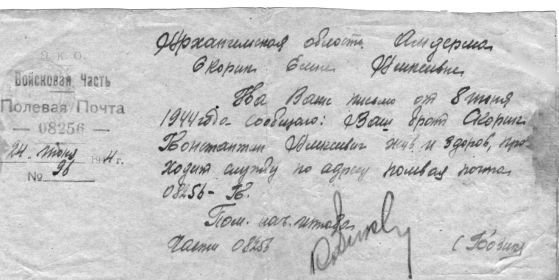 Н.К.О.
Войсковая Часть
Полевая Почта
— 08256 —
24 июня 1944 г.
№ 96
Архангельская область Амдерма
Скорик Елене Алексеевне
На Ваше письмо от 8 июня
1944 года сообщаю: Ваш брат Скорик
Константин Алексеевич жив и здоров, про-
ходит службу по адресу полевая почта
08256-В.
Пом. нач. штаба
Части 08256